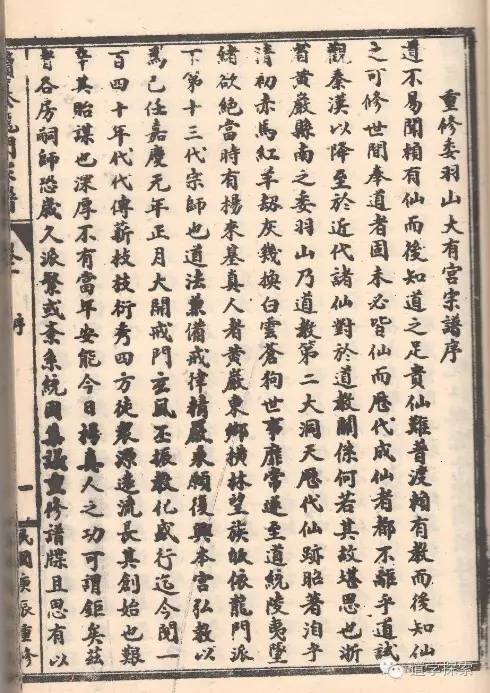 重修委羽山大有宮宗譜序
道不易聞賴有仙而後知道之足貴仙難普渡賴有教而後知仙
之可修世間奉道者固未必皆仙而歷代成仙者都不離乎道試
觀秦漢以降至於近代諸仙對於道教關係何若其故堪思也浙
省黃巖縣南之委羽山乃道教第二大洞天歷代仙跡昭著洎乎
清初赤馬紅羊劫灰幾換白雲蒼狗世事靡常遂至道統陵夷墜
緒欲絕當時有楊來基真人者黃巖東鄉橫林望族皈依龍門派
下第十三代宗師也道法兼備戒律精嚴東願復興本宮弘教以
為己任嘉慶元年正月大開戒門玄風丕振教化盛行迄今閱一
百四十年代代傳薪枝枝衍秀四方徒眾源遠流長其創始也艱
辛其貽謀也深厚不有當年安能今日楊真人之功可謂鉅矣茲
者各房嗣師恐歲久派繁或紊系統因集議重修譜牒且思有以
序
一
民國庚辰重修
道學探索